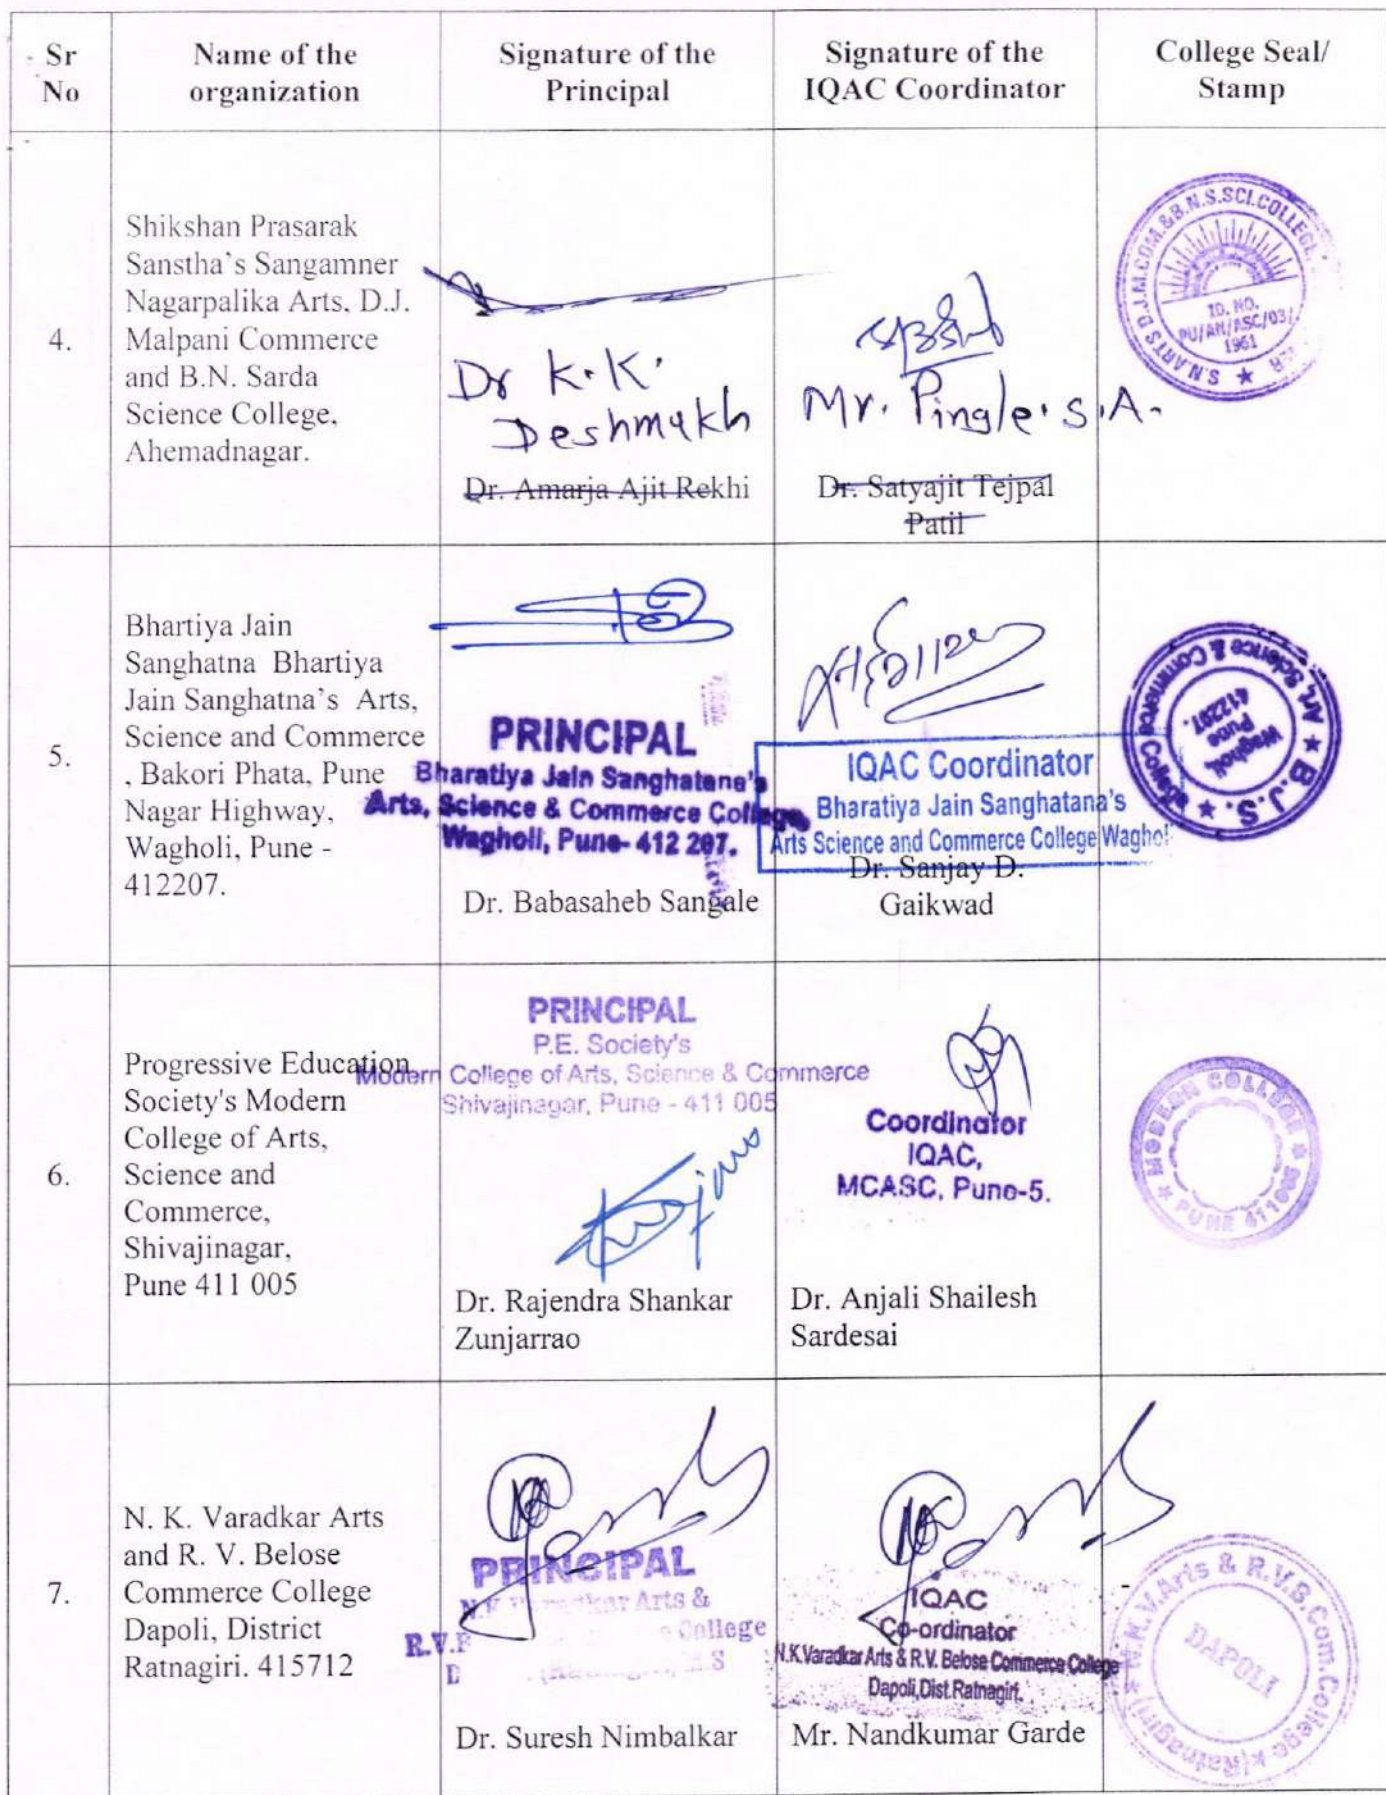 Sr
No
Name of the
organization
Signature of the
Principal
Signature of the
IQAC Coordinator
College Seal/
Stamp
4.
Shikshan Prasarak
Sanstha's Sangamner
Nagarpalika Arts, D.J.
Malpani Commerce
and B.N. Sarda
Science College,
Ahemadnagar.
Dr K.K.
Deshmukh
Dr. Amarja Ajit Rekhi
Mr. Pingle.S.A.
Dr. Satyajit Tejpal
Patil
S.N.ARTS D.J.M.COM.&B.N.S.SCI.COLLEGE,
ID. NO.
PU/AN/ASC/03/
1961
5.
Bhartiya Jain
Sanghatna Bhartiya
Jain Sanghatna's Arts,
Science and Commerce
, Bakori Phata, Pune
Nagar Highway,
Wagholi, Pune -
412207.
PRINCIPAL
Bharatiya Jain Sanghatana's
Arts, Science & Commerce College,
Wagholi, Pune- 412 207.
Dr. Babasaheb Sangale
IQAC Coordinator
Bharatiya Jain Sanghatana's
Arts Science and Commerce College Wagholi
Dr. Sanjay D.
Gaikwad
B.J.S.
Art, Science & Commerce College
Wagholi
Pune
412207.
6.
Progressive Education
Society's Modern
College of Arts,
Science and
Commerce,
Shivajinagar,
Pune 411 005
PRINCIPAL
P.E. Society's
Modern College of Arts, Science & Commerce
Shivajinagar, Pune - 411 005
Dr. Rajendra Shankar
Zunjarrao
Coordinator
IQAC,
MCASC, Pune-5.
Dr. Anjali Shailesh
Sardesai
MODERN COLLEGE
PUNE 411005
7.
N. K. Varadkar Arts
and R. V. Belose
Commerce College
Dapoli, District
Ratnagiri. 415712
PRINCIPAL
Arts &
College
Dr. Suresh Nimbalkar
IQAC
Co-ordinator
N.K.Varadkar Arts & R.V. Belose Commerce College
Dapoli,Dist.Ratnagiri.
Mr. Nandkumar Garde
N.K.V.Arts & R.V.B.Com.College
(Ratnagiri)
DAPOLI